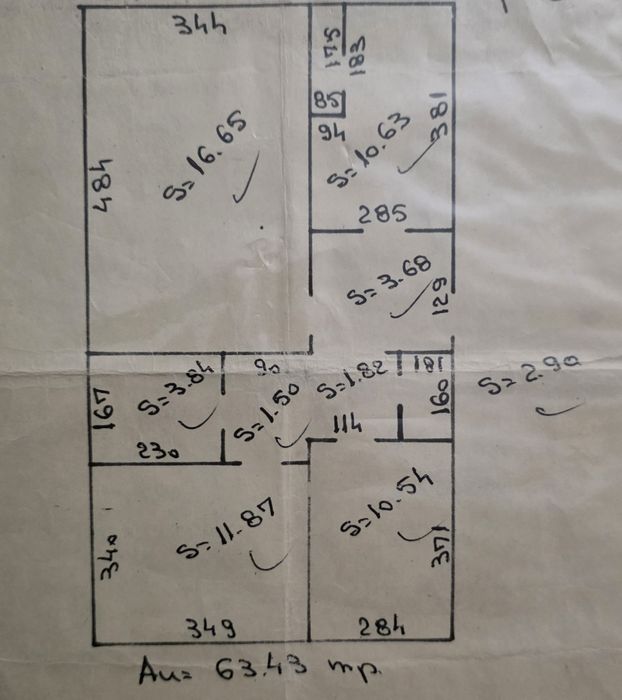 344
175
183
85
94
381
S= 16.65
S= 10.63
484
285
S= 3.68
129
90
181
S= 3.84
S= 1.82
S= 2.90
167
S= 1.50
160
230
114
S= 11.87
S= 10.54
340
371
349
284
Au= 63.43 mp.